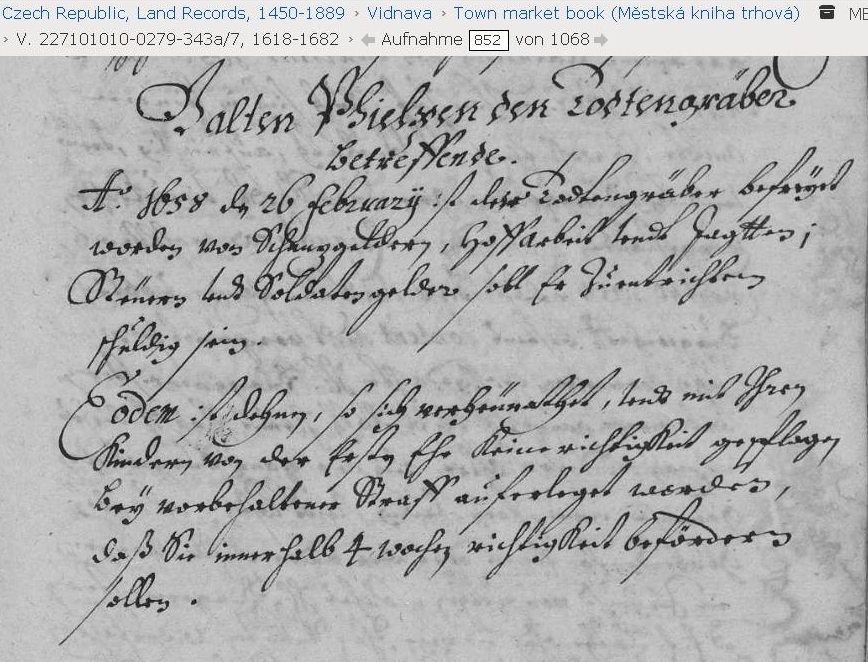 Czech Republic, Land Records, 1450-1889 › Vidnava › Town market book (Městská kniha trhová) ME
› V. 227101010-0279-343a/7, 1618-1682 › Aufnahme 852 von 1068
Valten den Todtengräber
betreffende.
Ao. 1658 dn 26 February ist der Todtengräber befreyet
worden von Schanzgeldern, Hoffarbeit undt Jagtten;
Steüern undt Soldatengelder soll Er Zuentrichten
schuldig sein.
Eodem ist dehnen, so sich verheürathet, undt mit Ihren
Kindern von der Ersten Ehe Keine richtigKeit gepflogen
bey vorbehaltener Straff auferleget worden,
daß Sie innerhalb 4 wochen richtigKeit befördern
sollen.